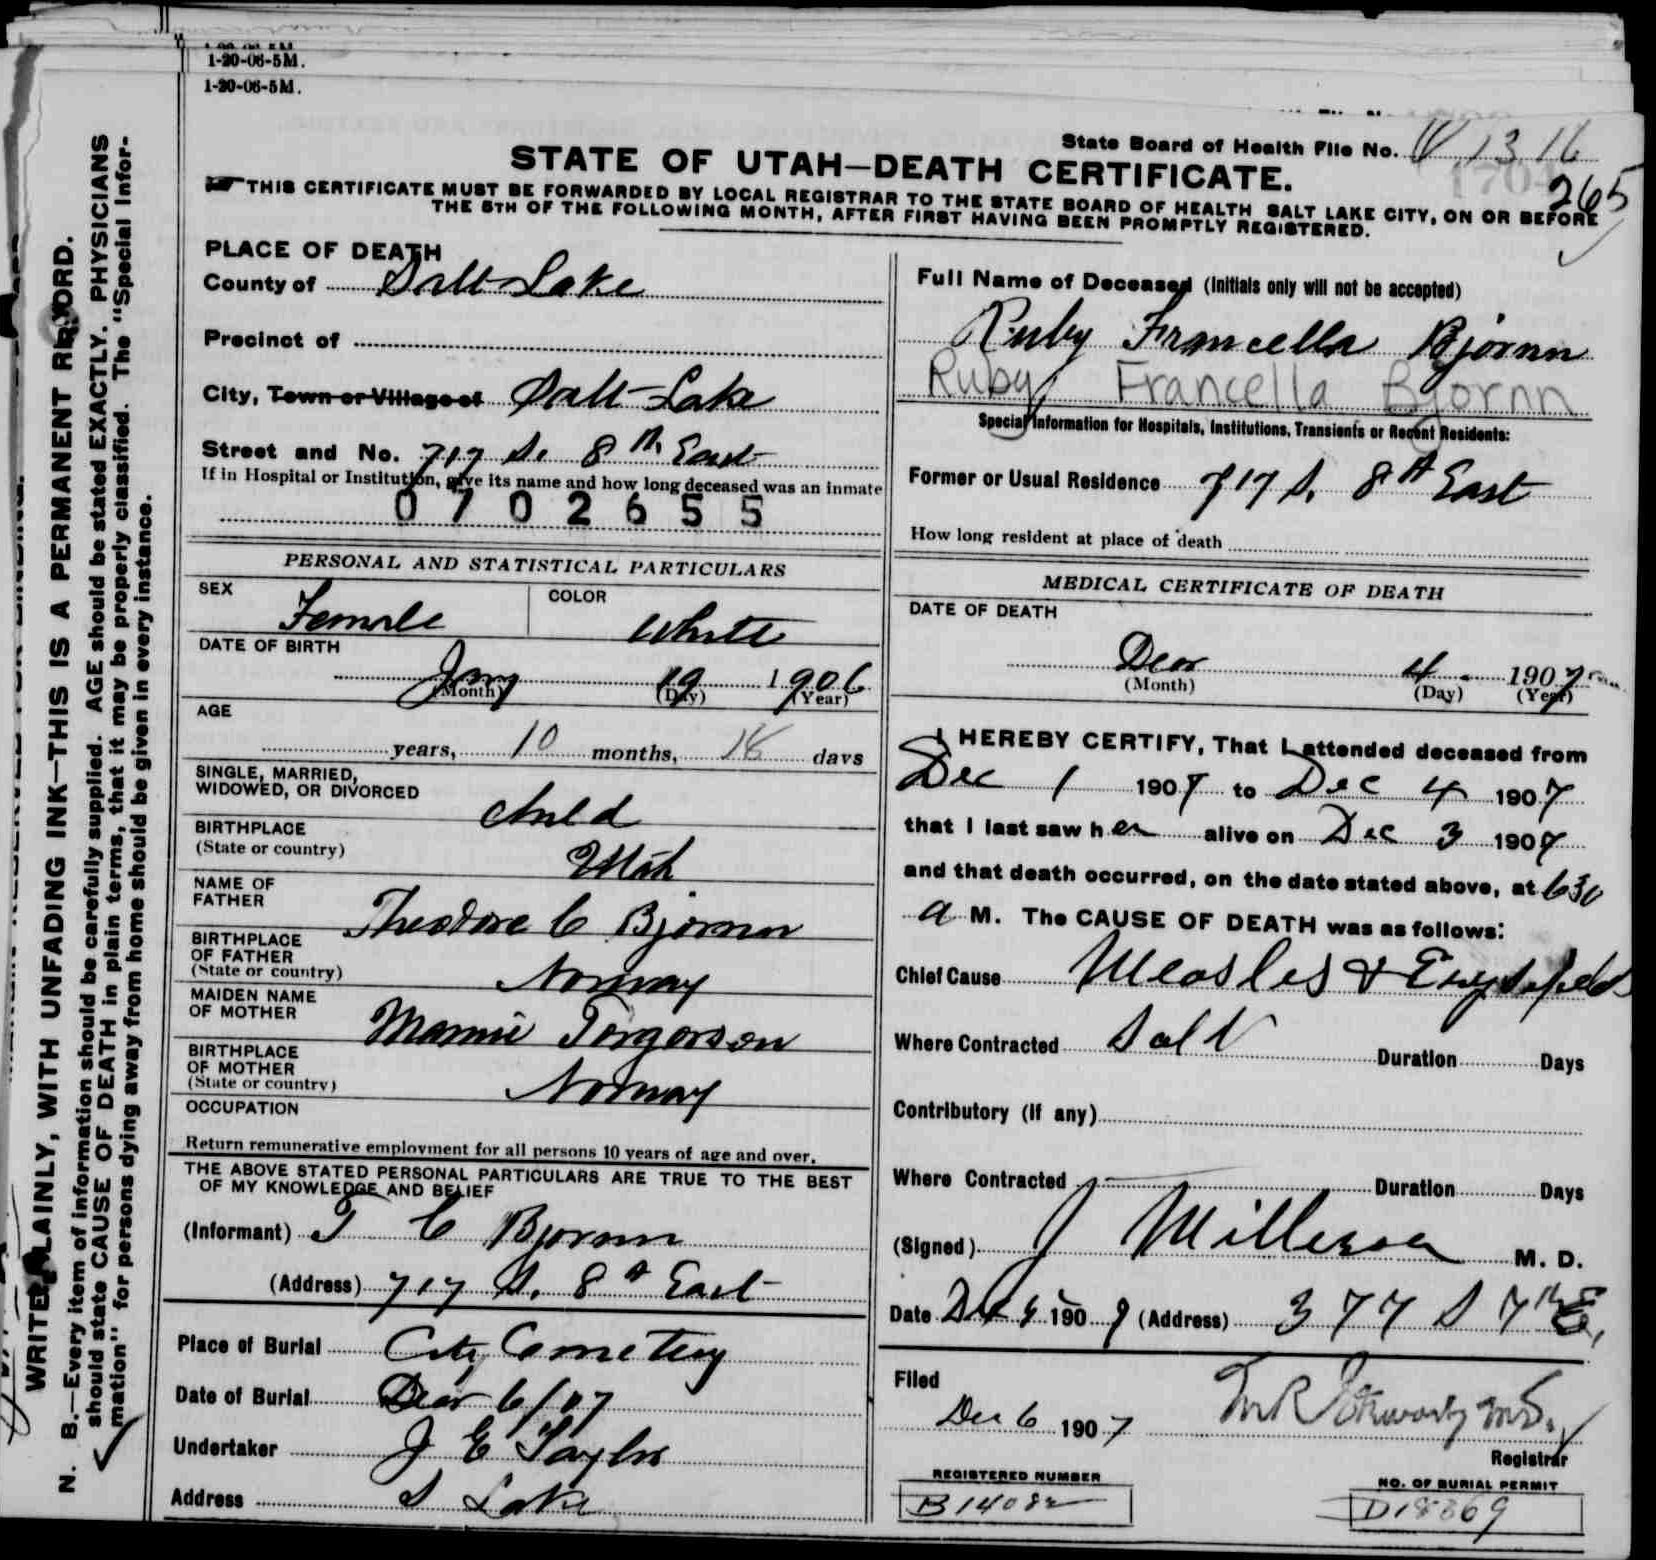 1-20-06-5M.
1-20-06-5M.
State Board of Health File No. 1316
265
STATE OF UTAH—DEATH CERTIFICATE.
THIS CERTIFICATE MUST BE FORWARDED BY LOCAL REGISTRAR TO THE STATE BOARD OF HEALTH SALT LAKE CITY, ON OR BEFORE
THE 5TH OF THE FOLLOWING MONTH, AFTER FIRST HAVING BEEN PROMPTLY REGISTERED.
PLACE OF DEATH
County of Salt Lake
Precinct of
City, Town or Village of Salt Lake
Street and No. 717 S. 8th East
If in Hospital or Institution, give its name and how long deceased was an inmate
0702655
Full Name of Deceased (Initials only will not be accepted)
Ruby Francella Bjornn
Ruby Francella Bjornn
Special Information for Hospitals, Institutions, Transients or Recent Residents:
Former or Usual Residence 717 S. 8th East
How long resident at place of death
PERSONAL AND STATISTICAL PARTICULARS
SEX Female COLOR White
DATE OF BIRTH
Jany 19 1906
(Month) (Day) (Year)
AGE
years, 10 months, 18 days
SINGLE, MARRIED,
WIDOWED, OR DIVORCED
Child
BIRTHPLACE
(State or country)
Utah
NAME OF
FATHER
Theodore C Bjornn
BIRTHPLACE
OF FATHER
(State or country)
Norway
MAIDEN NAME
OF MOTHER
Mamie Torgerson
BIRTHPLACE
OF MOTHER
(State or country)
Norway
OCCUPATION
Return remunerative employment for all persons 10 years of age and over.
THE ABOVE STATED PERSONAL PARTICULARS ARE TRUE TO THE BEST
OF MY KNOWLEDGE AND BELIEF
(Informant) T C Bjornn
(Address) 717 S. 8th East
Place of Burial City Cemetery
Date of Burial Decr 6/07
Undertaker J E Taylor
Address S Lake
MEDICAL CERTIFICATE OF DEATH
DATE OF DEATH
Decr 4 1907
(Month) (Day) (Year)
I HEREBY CERTIFY, That I attended deceased from
Dec 1 1907 to Dec 4 1907
that I last saw her alive on Dec 3 1907
and that death occurred, on the date stated above, at 630
a M. The CAUSE OF DEATH was as follows:
Chief Cause Measles & Erysipelas
Where Contracted Salt Duration Days
Contributory (if any)
Where Contracted Duration Days
(Signed) J Milleson M. D.
Date Dec 1907 (Address) 377 S 7th E.
Filed
Dec 6 1907
Registrar
REGISTERED NUMBER
B14082
NO. OF BURIAL PERMIT
D18369
WRITE PLAINLY, WITH UNFADING INK—THIS IS A PERMANENT RECORD.
N. B.—Every item of information should be carefully supplied. AGE should be stated EXACTLY. PHYSICIANS
should state CAUSE OF DEATH in plain terms, that it may be properly classified. The "Special Infor-
mation" for persons dying away from home should be given in every instance.